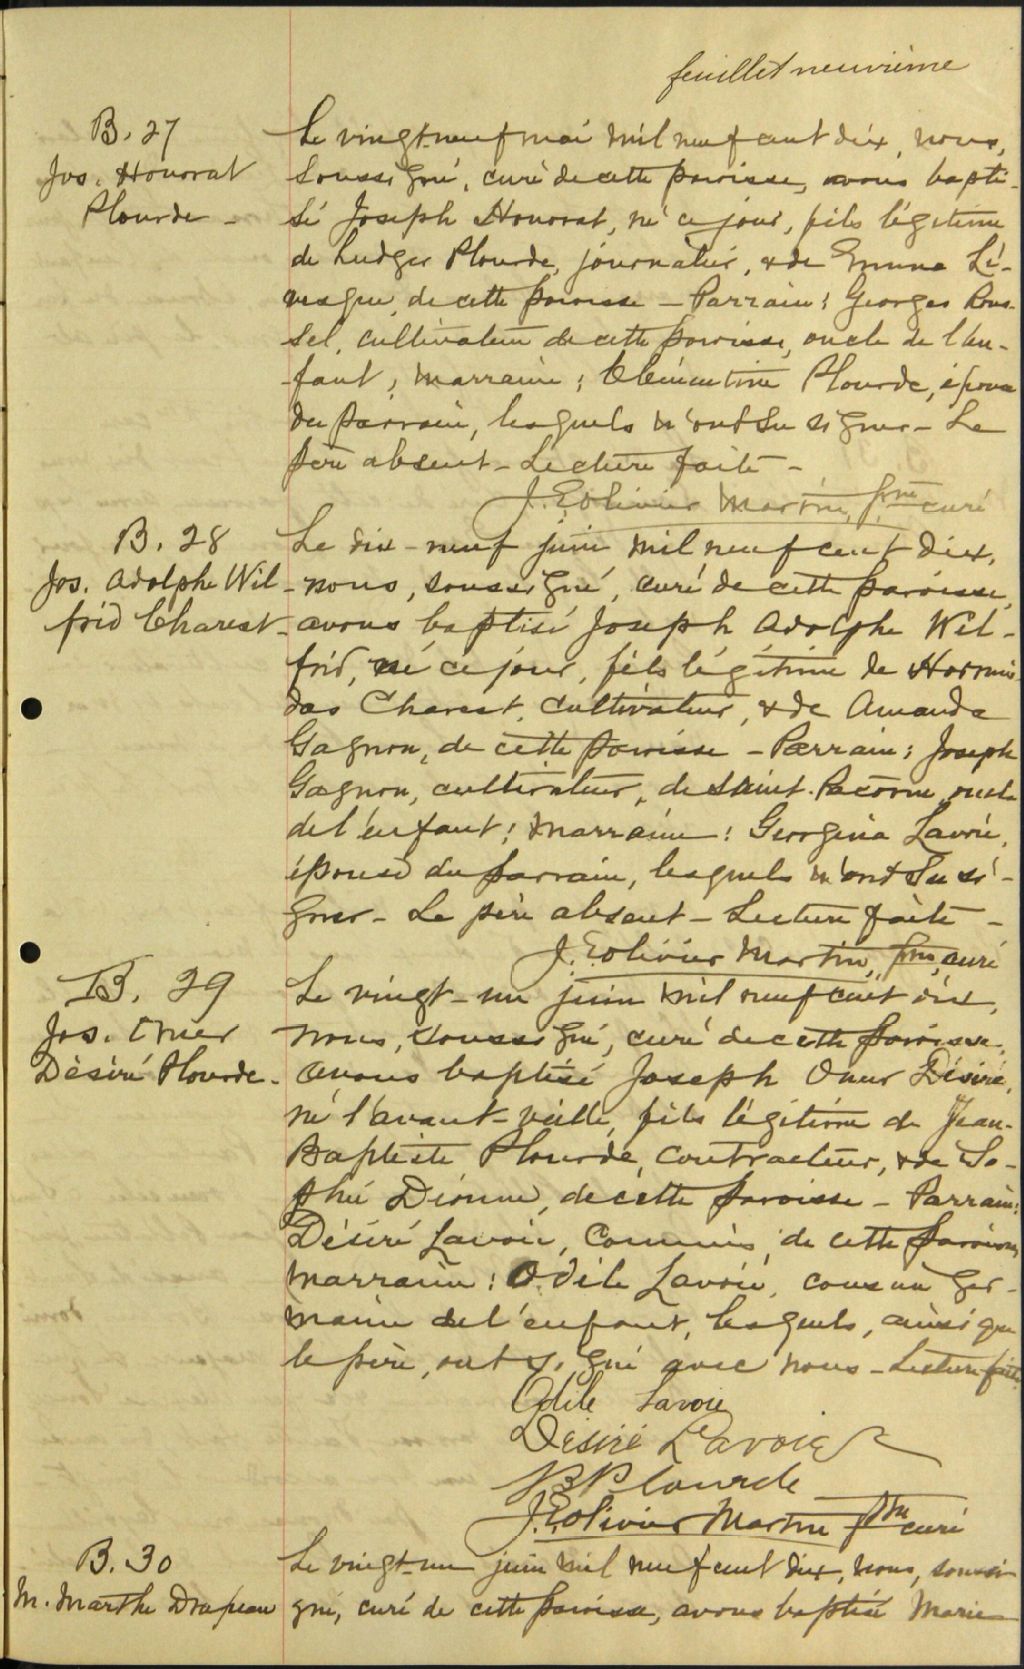 feuillet neuvième
B. 27
Jos. Honorat
Plourde -
Le vingt-neuf mai mil neuf cent dix, nous,
soussigné, curé de cette paroisse, avons bapti-
sé Joseph Honorat, né ce jour, fils légitime
de Ludger Plourde, journalier, & de Emma Lé-
vesque, de cette paroisse - Parrain : Georges Rous-
sel, cultivateur de cette paroisse, oncle de l'en-
fant ; marraine : Clémentine Plourde, épouse
du parrain, lesquels n'ont su signer - Le
père absent - Lecture faite -
J. E. Olivier Martin, ptre curé
B. 28
Jos. Adolphe Wil
frid Charest -
Le dix-neuf juin mil neuf cent dix,
nous, soussigné, curé de cette paroisse,
avons baptisé Joseph Adolphe Wil-
frid, né ce jour, fils légitime de Hormis
das Charest, cultivateur, & de Amanda
Gagnon, de cette paroisse - Parrain : Joseph
Gagnon, cultivateur, de Saint-Pacôme, oncle
de l'enfant ; marraine : Georgina Lavoie,
épouse du parrain, lesquels n'ont su si-
gner - Le père absent - Lecture faite -
J. E. Olivier Martin, ptre, curé
B. 29
Jos. Omer
Désiré Plourde -
Le vingt-un juin mil neuf cent dix,
nous, soussigné, curé de cette paroisse,
avons baptisé Joseph Omer Désiré,
né l'avant-veille, fils légitime de Jean-
Baptiste Plourde, contracteur, & de So-
phie Dionne, de cette paroisse - Parrain :
Désiré Lavoie, commis, de cette paroisse,
marraine : Odile Lavoie, cousine ger-
maine de l'enfant, lesquels, ainsi que
le père, ont signé avec nous - Lecture faite
Odile Lavoie
Désiré Lavoie
JB Plourde
J. E. Olivier Martin ptre curé
B. 30
M. Marthe Drapeau
Le vingt-un juin mil neuf cent dix, nous, soussi
gné, curé de cette paroisse, avons baptisé Marie